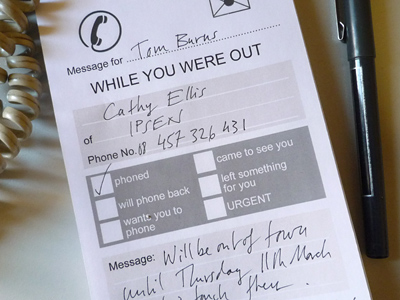 Message for Tom Burns
WHILE YOU WERE OUT
Cathy Ellis
of IPSEN
Phone No. 08 457 326 431
phoned
came to see you
will phone back
left something for you
wants you to phone
URGENT
Message: Will be out of town
until Thursday 11th March
touch then.